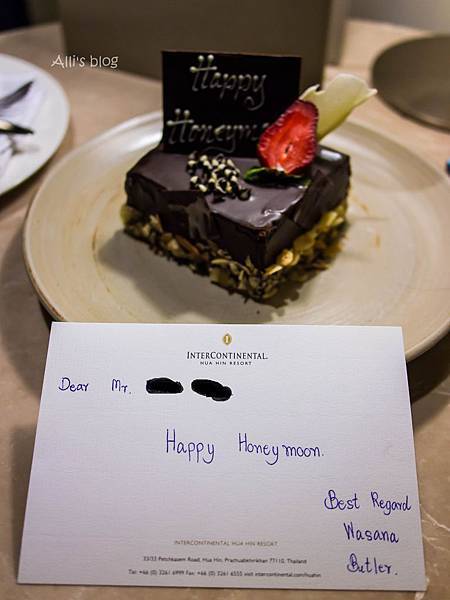 Alli's blog
Happy
Honeym
INTERCONTINENTAL
HUA HIN RESORT
Dear Mr.
Happy Honeymoon.
Best Regard
Wasana
Butler.
INTERCONTINENTAL HUA HIN RESORT
33/33 Petchkasem Road, Hua Hin, Prachuabkhirikhan 77110, Thailand
Tel: +66 (0) 3261 6999 Fax: +66 (0) 3261 6555 visit intercontinental.com/huahin